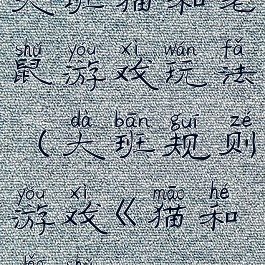 大班猫和老
shǔ yóu xì wán fǎ
鼠游戏玩法
dà bān guī zé
(大班规则
yóu xì māo hé
游戏《猫和